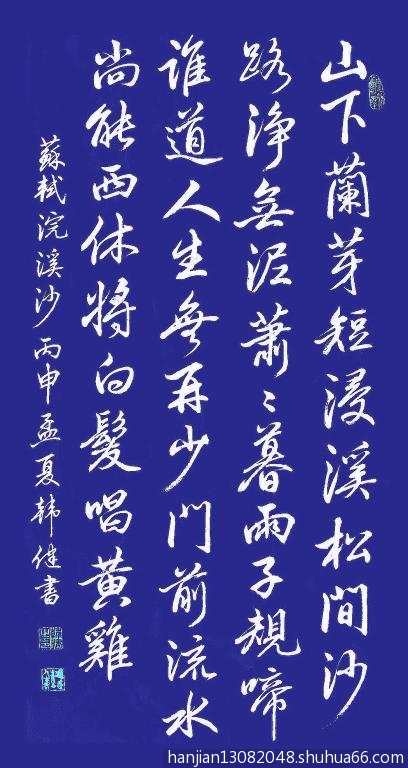 山下蘭芽短浸溪松間沙
路淨無泥蕭〻暮雨子規啼
誰道人生無再少門前流水
尚能西休將白髮唱黃雞
蘇軾浣溪沙 丙申孟夏韓健書
hanjian13082048.shuhua66.com